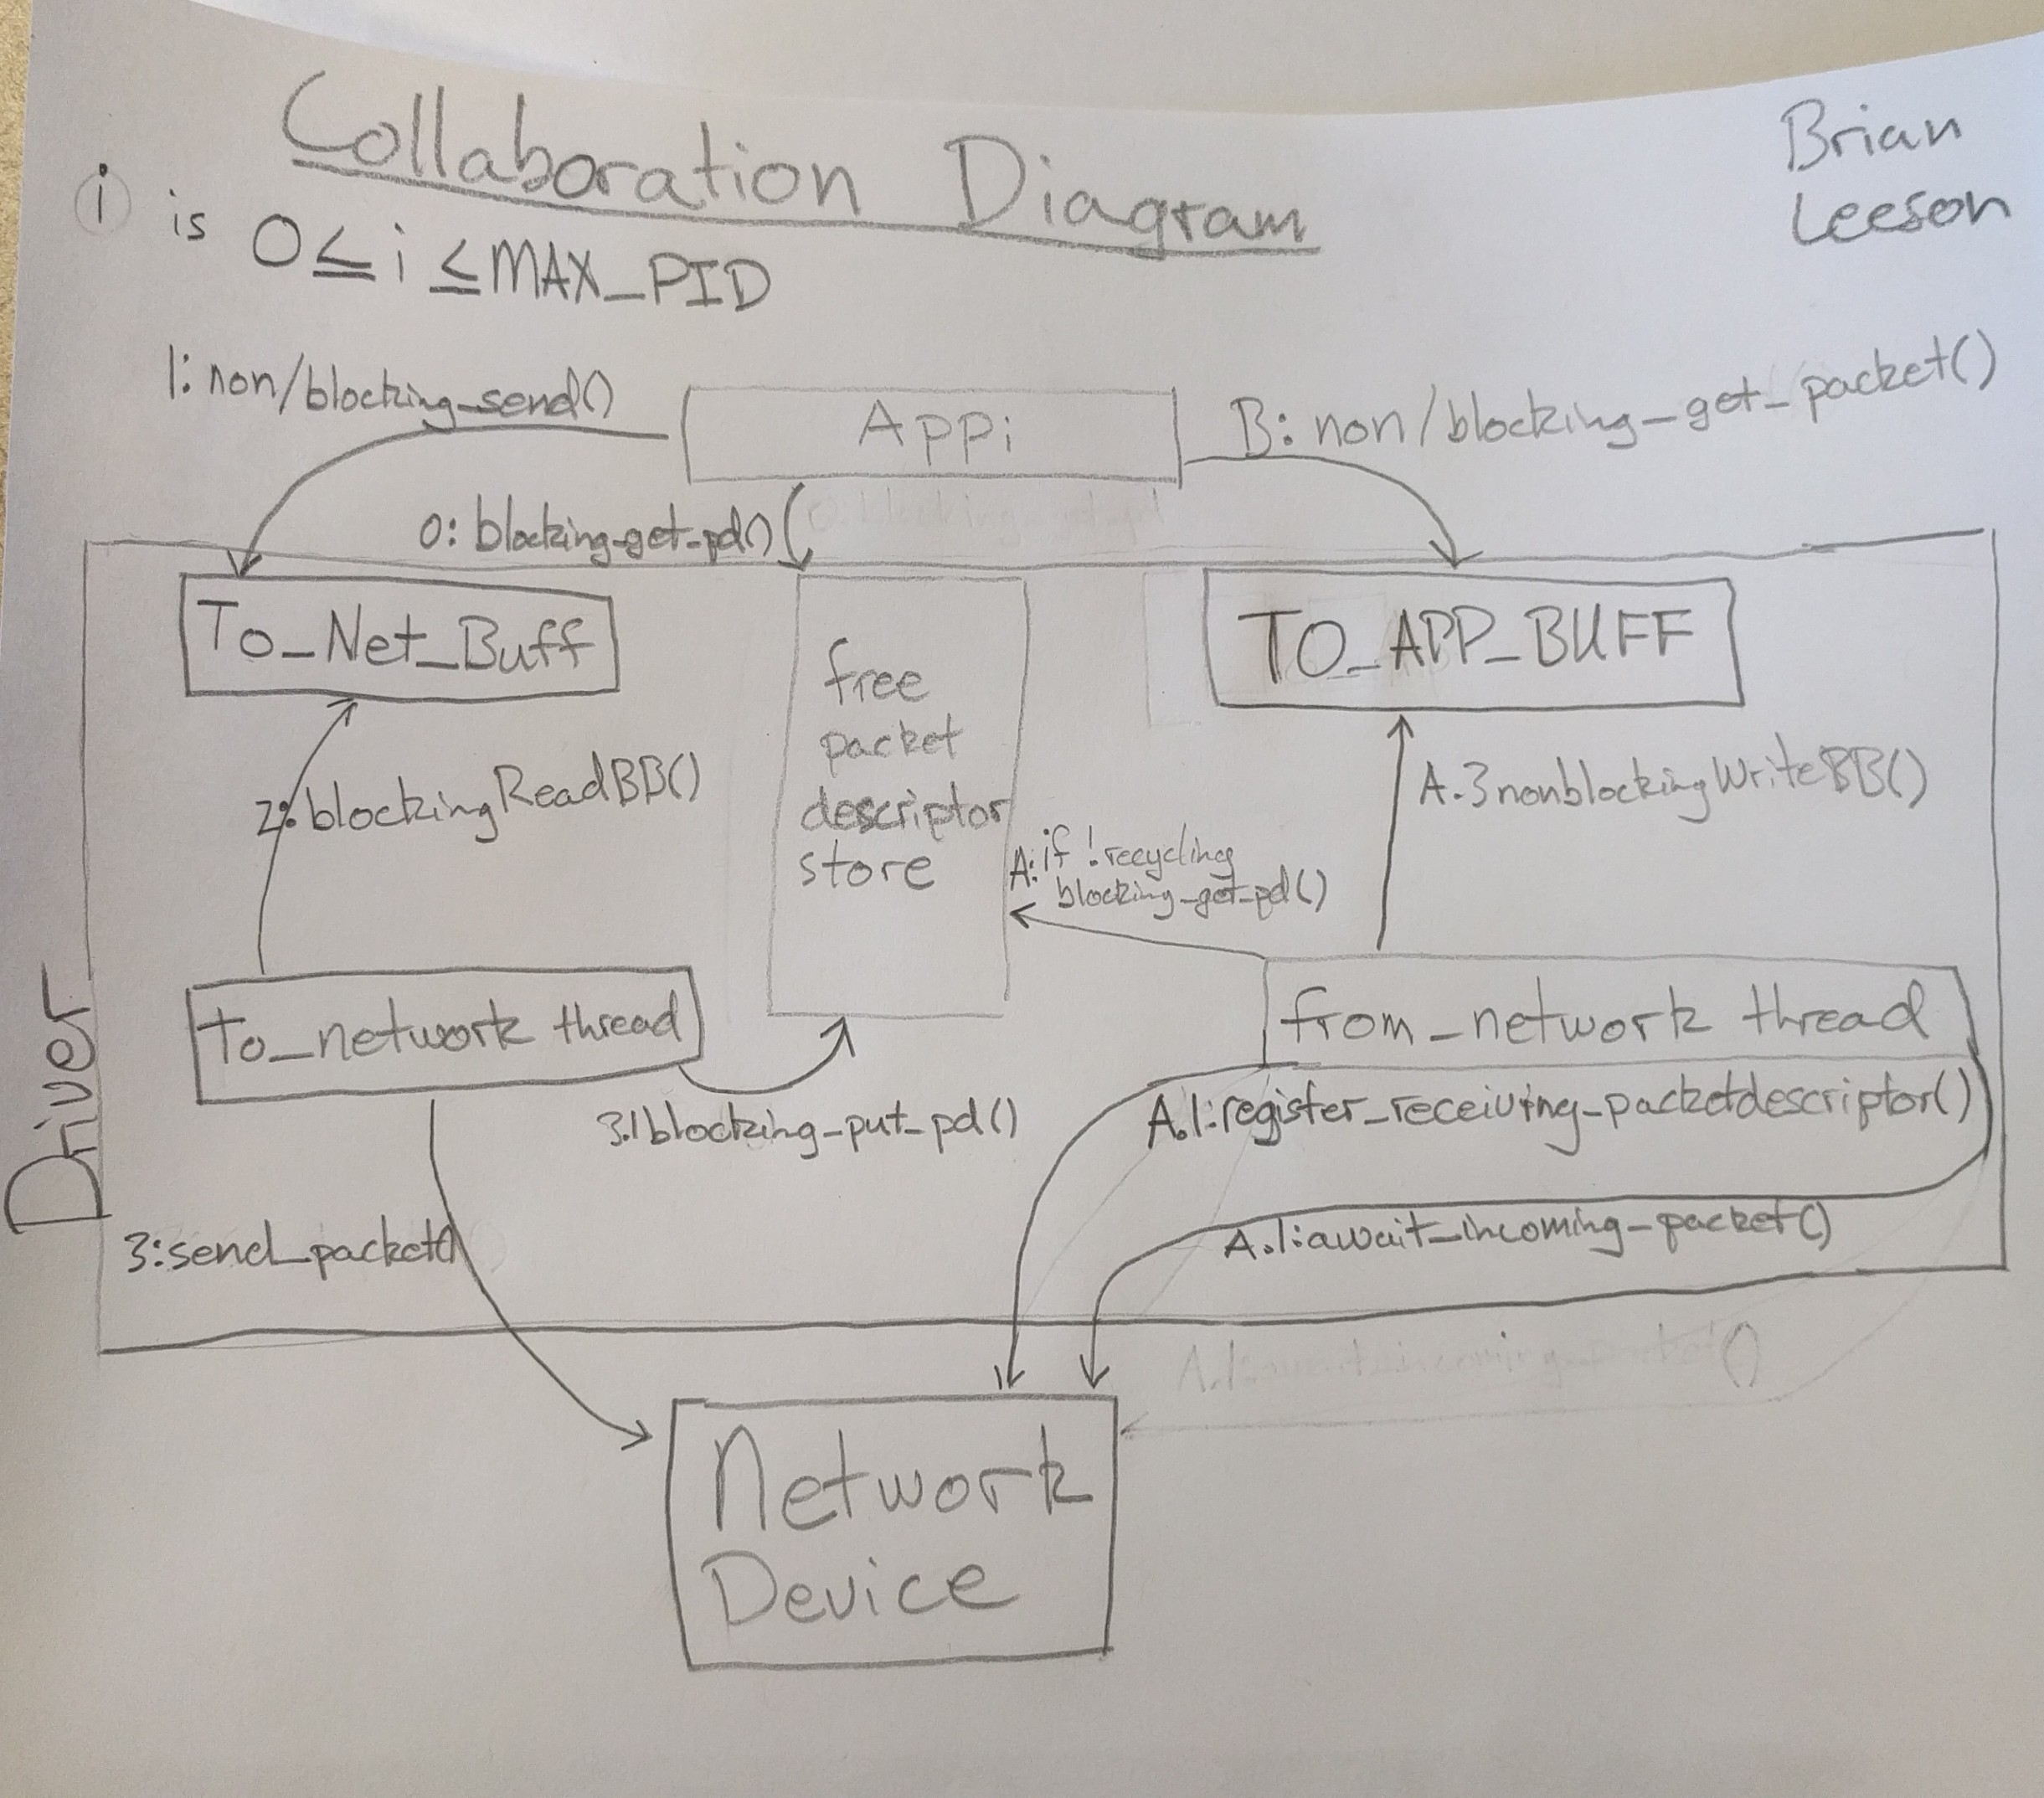 Collaboration Diagram
Brian
Leeson
i is 0≤i≤MAX_PID
1: non/blocking_send()
Appi
B: non/blocking_get_packet()
0: blocking-get-pd()
To_Net_Buff
free
packet
descriptor
store
TO_APP_BUFF
2: blockingReadBB()
A.3nonblockingWriteBB()
A: if !recycling
blocking-get-pd()
Driver
To_network thread
from_network thread
3.1blocking_put_pd()
A.1:register_receiving_packetdescriptor()
3:send_packet()
A.1:await_incoming_packet()
Network
Device